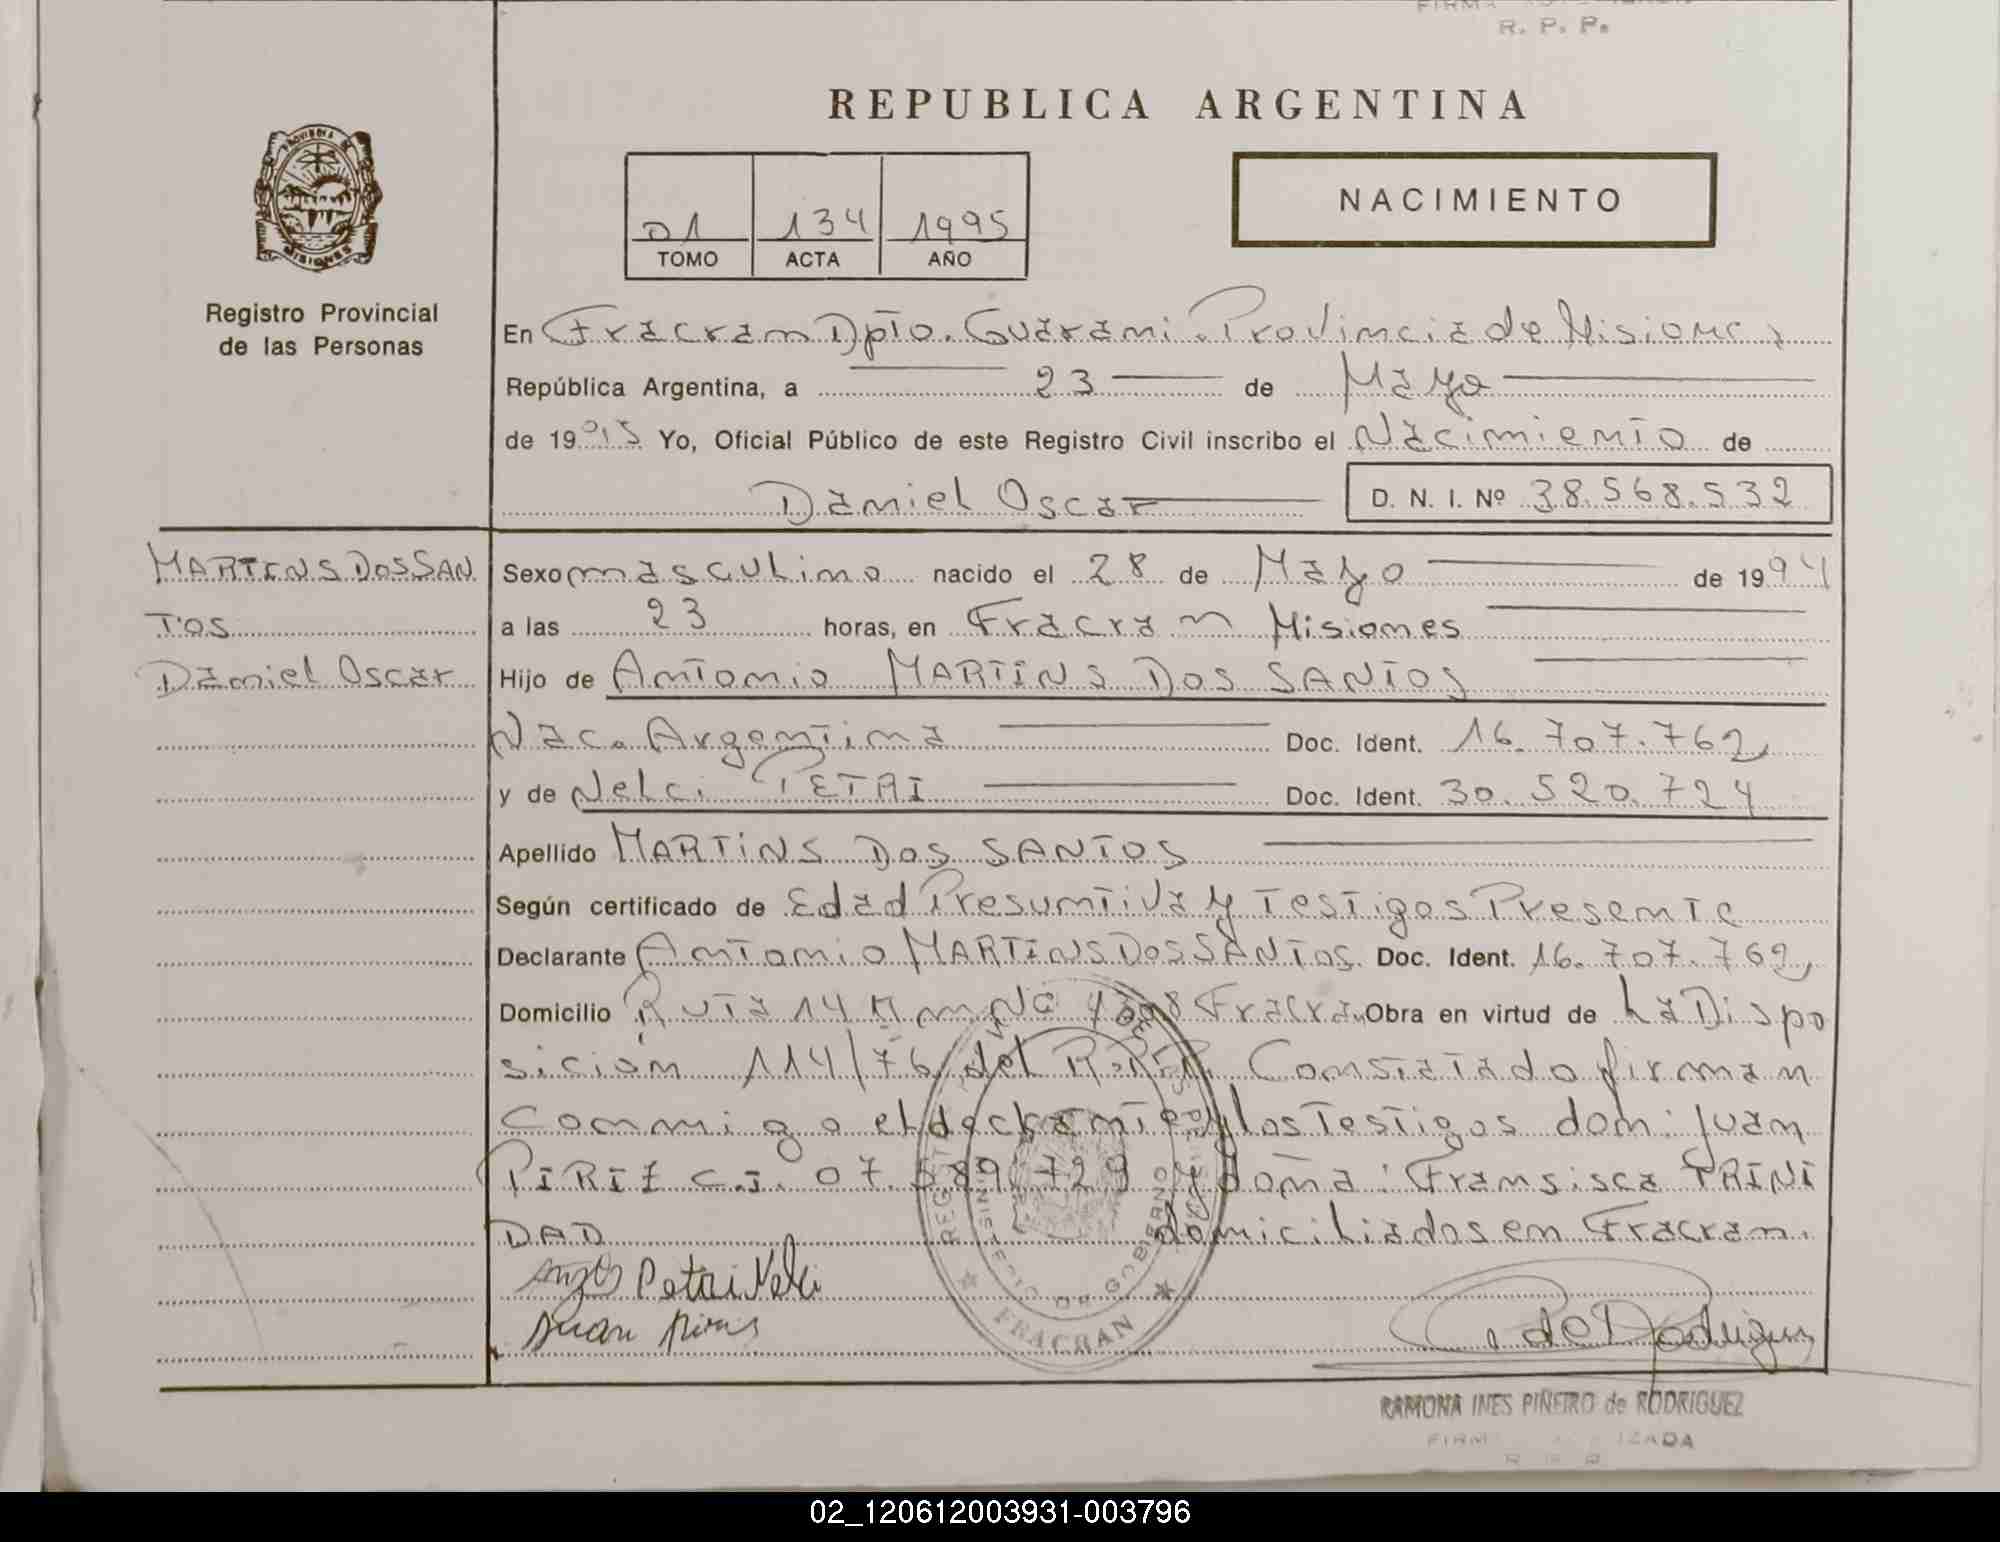 R. P. P.
REPUBLICA ARGENTINA
01 134 1995
TOMO ACTA AÑO
NACIMIENTO
PROVINCIA DE
MISIONES
Registro Provincial
de las Personas
En Fracran Dpto. Guarani. Provincia de Misiones
República Argentina, a 23 de Mayo
de 1995 Yo, Oficial Público de este Registro Civil inscribo el Nacimiento de
Daniel Oscar D. N. I. Nº 38.568.532
MARTINS DOS SAN
TOS
Daniel Oscar
Sexo masculino nacido el 28 de Mayo de 1994
a las 23 horas, en Fracran Misiones
Hijo de Antonio MARTINS DOS SANTOS
Nac. Argentina Doc. Ident. 16.707.762
y de Nelci PETRI Doc. Ident. 30.520.724
Apellido MARTINS DOS SANTOS
Según certificado de Edad Presuntiva y Testigos Presente
Declarante Antonio MARTINS DOS SANTOS Doc. Ident. 16.707.762
Domicilio Ruta 14 Fracran Obra en virtud de La Dispo
sición 114/76 del R.P.P. Constatado firman
conmigo el declarante y los Testigos don: Juan
PIRIZ C.I. 07.589.729 y doña: Fransisca TRINI
DAD domiciliados en Fracran.
Petri Nelci
Juan Piris
de Rodriguez
FRACRAN
RAMONA INES PIÑEIRO de RODRIGUEZ
02_120612003931-003796